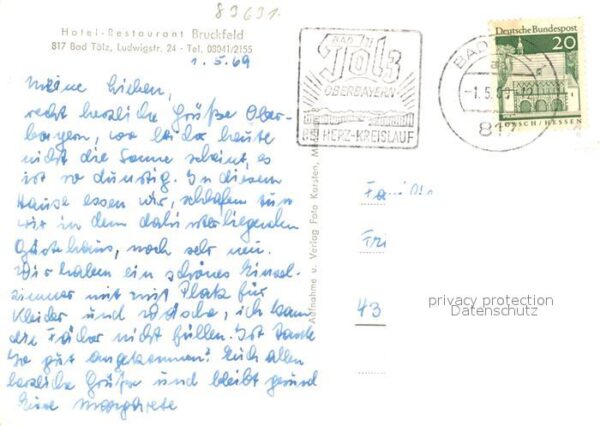 89691
Hotel-Restaurant Bruckfeld
817 Bad Tölz, Ludwigstr. 24 - Tel. 08041/2155
1.5.69
Meine Lieben,
recht herzliche Grüße Ober-
bayern, wo leider heute
nicht die Sonne scheint, es
ist so dunstig. In diesem
Hause essen wir, schlafen tun
wir in dem dahinterliegenden
Gästehaus, noch sehr neu.
Wir haben ein schönes Einzel-
zimmer mit Platz für
Kleider und Wäsche, ich kann
die Fächer nicht füllen. Ist Tante
gut angekommen? Euch allen
herzliche Grüße und bleibt gesund
Eure Margarete
Aufnahme u. Verlag Foto Karsten,
BAD
Tölz
OBERBAYERN
HERZ-KREISLAUF
BAD
-1.5.69-12
817
Deutsche Bundespost
20
LORSCH/HESSEN
Familie
43
privacy protection
Datenschutz